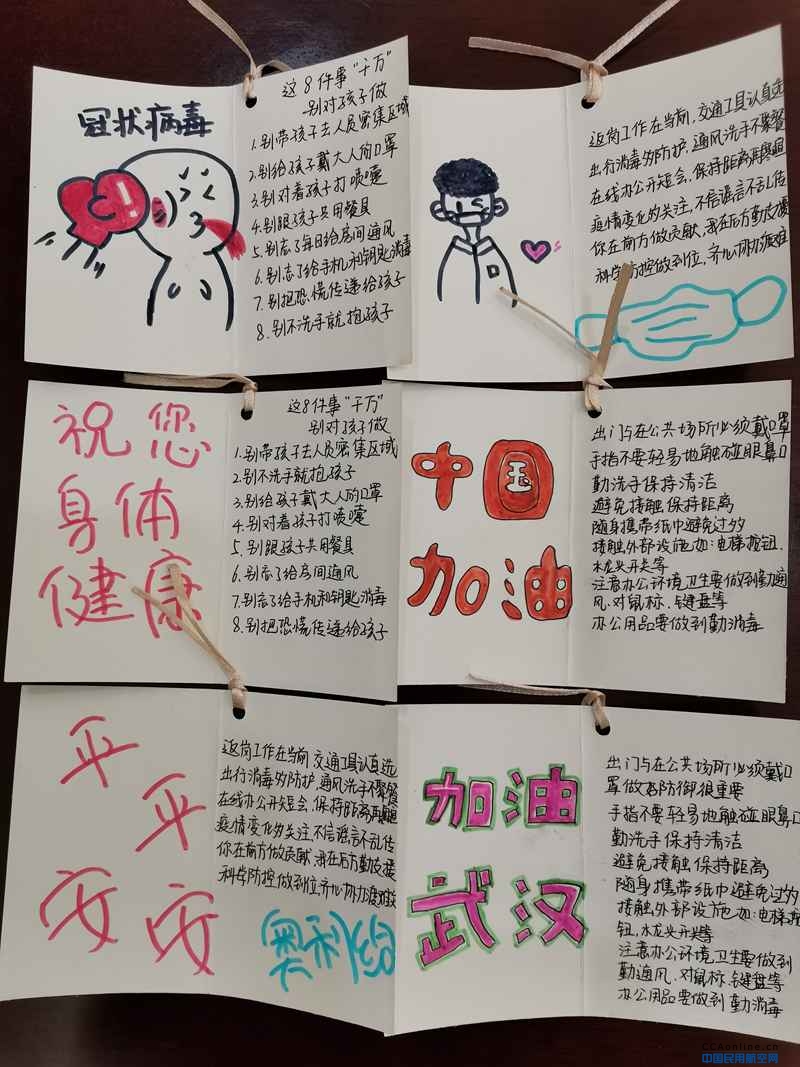 冠状病毒
这8件事"千万"
别对孩子做
1.别带孩子去人员密集区域
2.别给孩子戴大人的口罩
3.别对着孩子打喷嚏
4.别跟孩子共用餐具
5.别忘了每日给房间通风
6.别忘了给手机和钥匙消毒
7.别把恐慌传递给孩子
8.别不洗手就抱孩子
返岗工作在当前,交通工具认真选
出行消毒勿防护,通风洗手不聚餐
在线办公开短会,保持距离再
疫情变化勿关注,不信谣言不乱传
你在前方做贡献,我在后方勤支援
科学防控做到位,齐心协力
祝您
身体
健康
这8件事"千万"
别对孩子做
1.别带孩子去人员密集区域
2.别不洗手就抱孩子
3.别给孩子戴大人的口罩
4.别对着孩子打喷嚏
5.别跟孩子共用餐具
6.别忘了给房间通风
7.别忘了给手机和钥匙消毒
8.别把恐慌传递给孩子
中国
加油
出门与在公共场所必须戴口罩
手指不要轻易地触碰眼鼻口
勤洗手保持清洁
避免接触保持距离
随身携带纸巾避免过多
接触外部设施如:电梯按钮,
水龙头开关等
注意办公环境卫生要做到勤通
风.对鼠标、键盘等
办公用品要做到勤消毒
平
平
安
安
返岗工作在当前 交通工具认真选
出行消毒勿防护,通风洗手不聚餐
在线办公开短会,保持距离再
疫情变化勿关注 不信谣言不乱传
你在前方做贡献 我在后方勤支援
科学防控做到位 齐心协力
(奥利给
加油
武汉
出门与在公共场所必须戴口
罩做者防御很重要
手指不要轻易地触碰眼鼻口
勤洗手保持清洁
避免接触保持距离
随身携带纸巾避免过多
接触外部设施如:电梯按
钮,水龙头开关等
注意办公环境卫生要做到
勤通风.对鼠标、键盘等
办公用品要做到勤消毒
CCAonline.cn
中国民用航空网